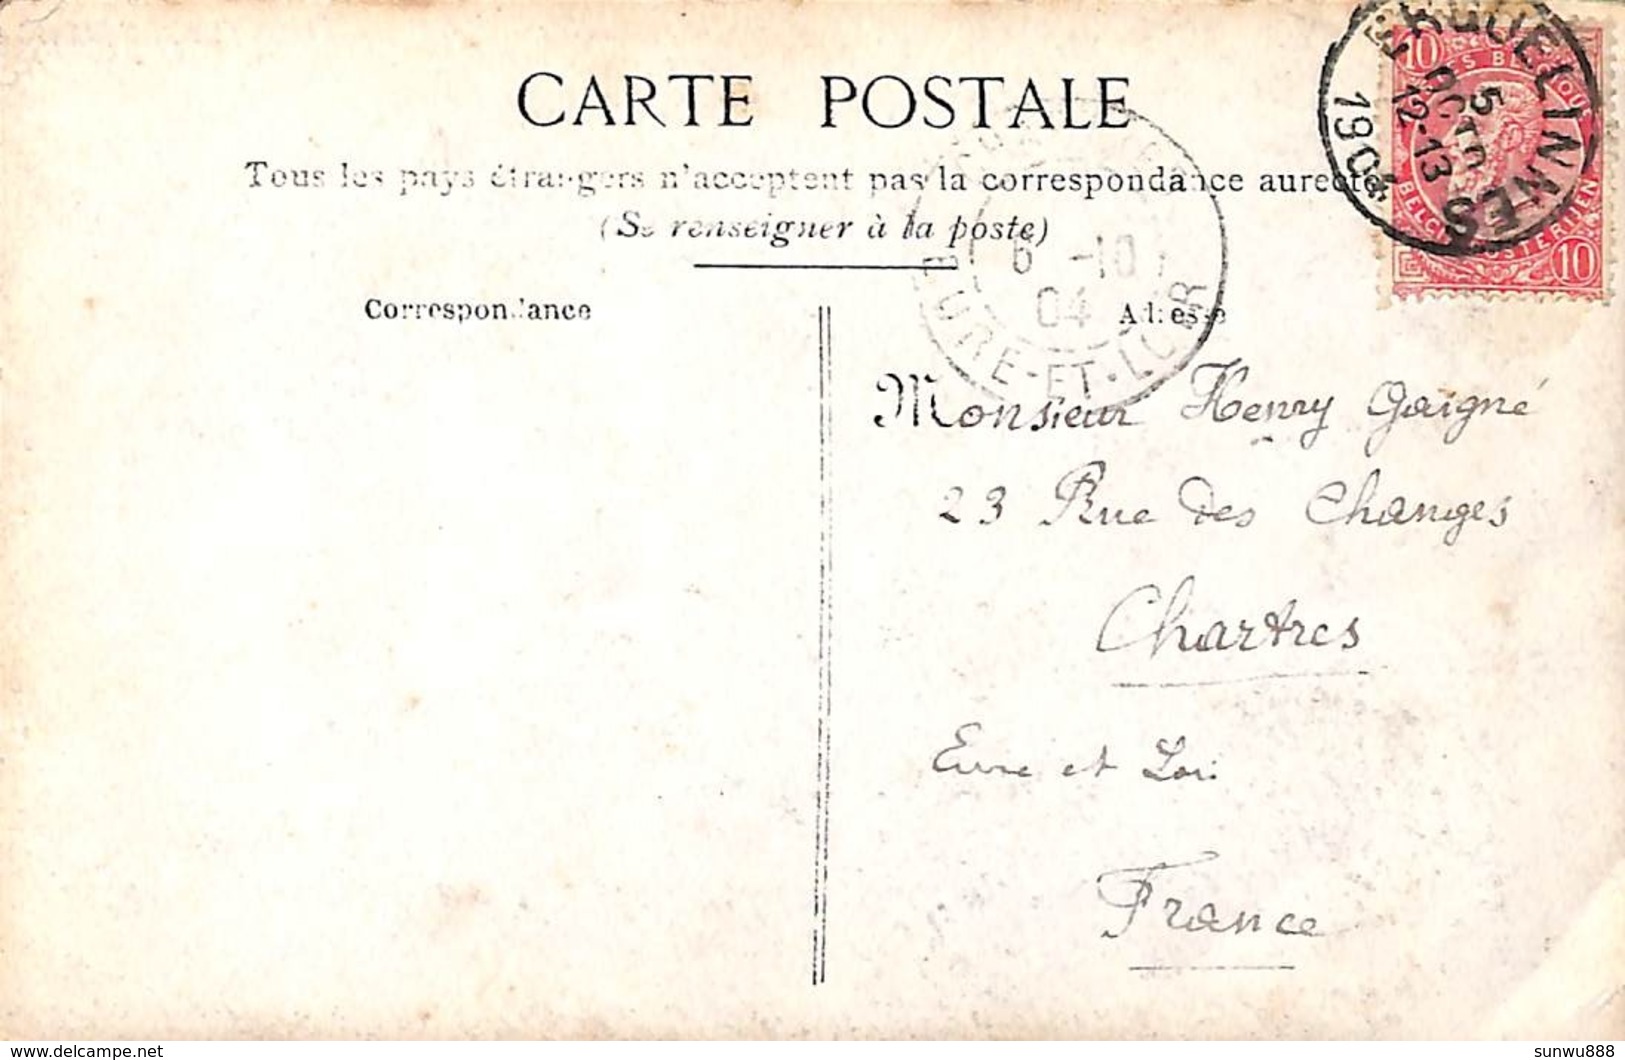 CARTE POSTALE
Tous les pays étrangers n'acceptent pas la correspondance au recto
(Se renseigner à la poste)
Correspondance
Adresse
ERQUELINNES
5
OCTO
12-13
1904
10
10
BELGIQUE
BELGIE
6 -10
04
EURE-ET-LOIR
Monsieur Henry Gaigné
23 Rue des Changes
Chartres
Eure et Loir
France
sunwu888